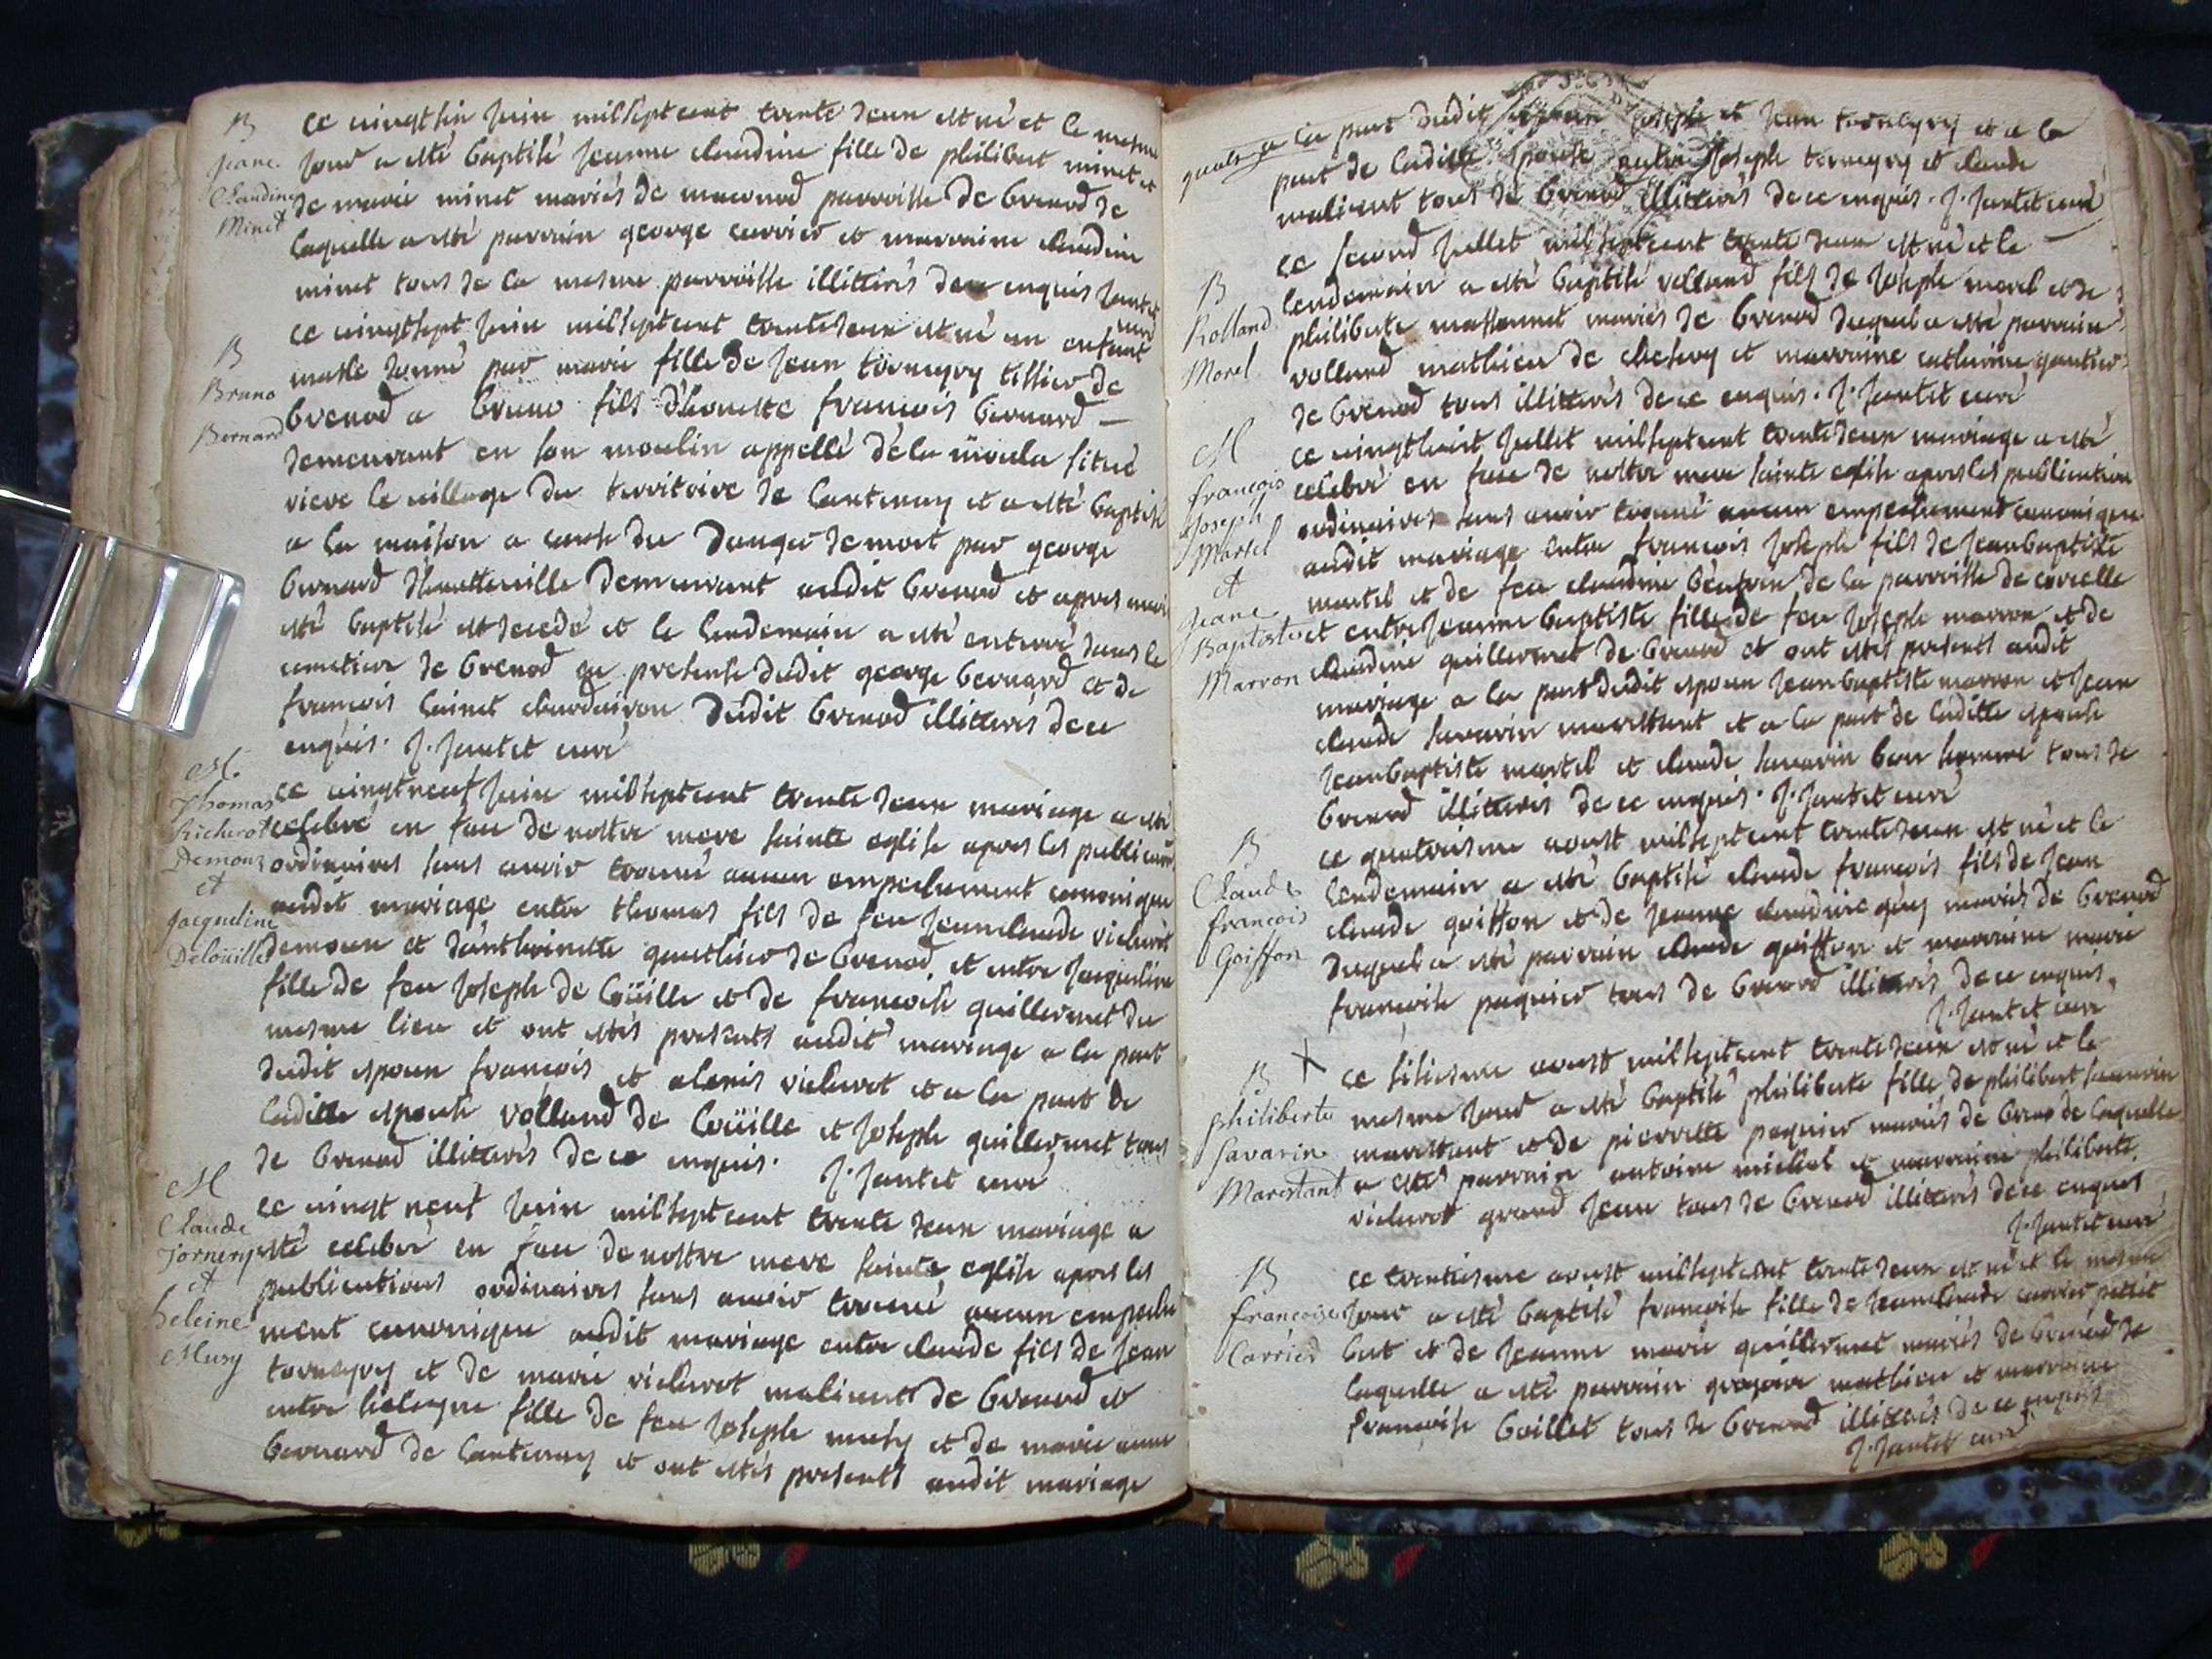 B
Jeane
Claudine
Minet
ce vingtsix Juin milseptcent trente deux est né et le mesme
Jour a esté baptisé Jeanne claudine fille de philibert minet et
de marie minet mariés de maconod parroisse de brenod de
laquelle a esté parrain george carrier et marraine claudine
minet tous de la mesme parroisse illitterés de ce enquis Jantet
curé
B
Bruno
Bernard
ce vingtsept Juin milseptcent trentedeux est né un enfant
masle donné par marie fille de Jean tornegry tissier de
brenod a bruno fils d'honeste francois bernard —
demeurant en son moulin appellé de la situé
riere le village du territoire de lantenay et a esté baptisé
a la maison a cause du danger de mort par george
bernard d'hautteville demeurant audit brenod et apres avoir
esté baptisé est decedé et le lendemain a esté enterré dans le
cemetiere de brenod en presense dudit george bernard et de
francois lainet dudit brenod illitterés de ce
enquis. J. Jantet curé
M
Thomas
Richerot
Demoux
et
Jacqueline
Deloüille
ce vingtneuf Juin milseptcent trente deux mariage a esté
celebré en face de nostre mere sainte eglise apres les publications
ordinaires sans avoir trouvé aucun empechement canonique
audit mariage entre thomas fils de feu Jeanclaude richerot
demoux et d'anthoinette gauthier de brenod, et entre Jacqueline
fille de feu Joseph de loüille et de francoise guillermet du
mesme lieu et ont estés presents audit mariage a la part
dudit epoux francois et alexis richerot et a la part de
laditte epouse rolland de loüille et Joseph guillermet tous
de brenod illitterés de ce enquis. J. Jantet curé
M
Claude
Tornery
et
heleine
Musy
ce vingt neuf Juin milseptcent trente deux mariage a
esté celebré en face de nostre mere sainte eglise apres les
publications ordinaires sans avoir trouvé aucun empeche
ment canonique audit mariage entre claude fils de Jean
tornegry et de marie richerot malicent de brenod et
entre heleyne fille de feu Joseph musy et de marie anne
bernard de lantenay et ont estés presents audit mariage
a la part dudit epoux Joseph et Jean tornegry et a la
part de laditte epouse autre Joseph tornegry et claude
malicent tous de brenod illitterés de ce enquis. J. Jantet curé
B
Rolland
Morel
ce second Juillet milseptcent trente deux est né et le
lendemain a esté baptisé rolland fils de Joseph morel et de
philiberte massonnet mariés de brenod duquel a esté parrain
rolland mathieu de chesery et marraine catherine gautier
de brenod tous illitterés de ce enquis. J. Jantet curé
M
francois
Joseph
Martel
et
Jeane
Baptiste
Marron
ce vingthuit Juillet milseptcent trentedeux mariage a esté
celebré en face de nostre mere sainte eglise apres les publication
ordinaires sans avoir trouvé aucun empechement canonique
audit mariage entre francois Joseph fils de Jeanbaptiste
martel et de feu claudine de la parroisse de corcelle
et entre Jeanne baptiste fille de feu Joseph marron et de
claudine guillermet de brenod et ont estés presents audit
mariage a la part dudit epoux Jeanbaptiste marron et Jean
claude savarin marestant et a la part de laditte epouse
Jeanbaptiste martel et claude savarin bon homme tous de
brenod illitterés de ce enquis. J. Jantet curé
B
Claude
francois
Goiffon
ce quatriesme aoust milseptcent trentedeux est né et le
lendemain a esté baptisé claude francois fils de Jean
claude goiffon et de Jeanne claudine guy mariés de brenod
duquel a esté parrain claude goiffon et marraine marie
francoise paquier tous de brenod illitterés de ce enquis,
J. Jantet curé
B
philiberte
Savarin
Marestant
X
ce sixiesme aoust milseptcent trentedeux est né et le
mesme Jour a esté baptisé philiberte fille de philibert savarin
marestant et de pierrette paquier mariés de brenod de laquelle
a estés parrain antoine michel et marraine philiberte
richerot grand Jean tous de brenod illitterés de ce enquis
J. Jantet curé
B
francoise
Carrier
ce trentiesme aoust milseptcent trentedeux est né et le mesme
Jour a esté baptisé francoise fille de Jeanclaude carrier petiet
but et de Jeanne marie guillermet mariés de brenod de
laquelle a esté parrain gregoire mathieu et marraine
francoise baillet tous de brenod illitterés de ce enquis
J. Jantet curé